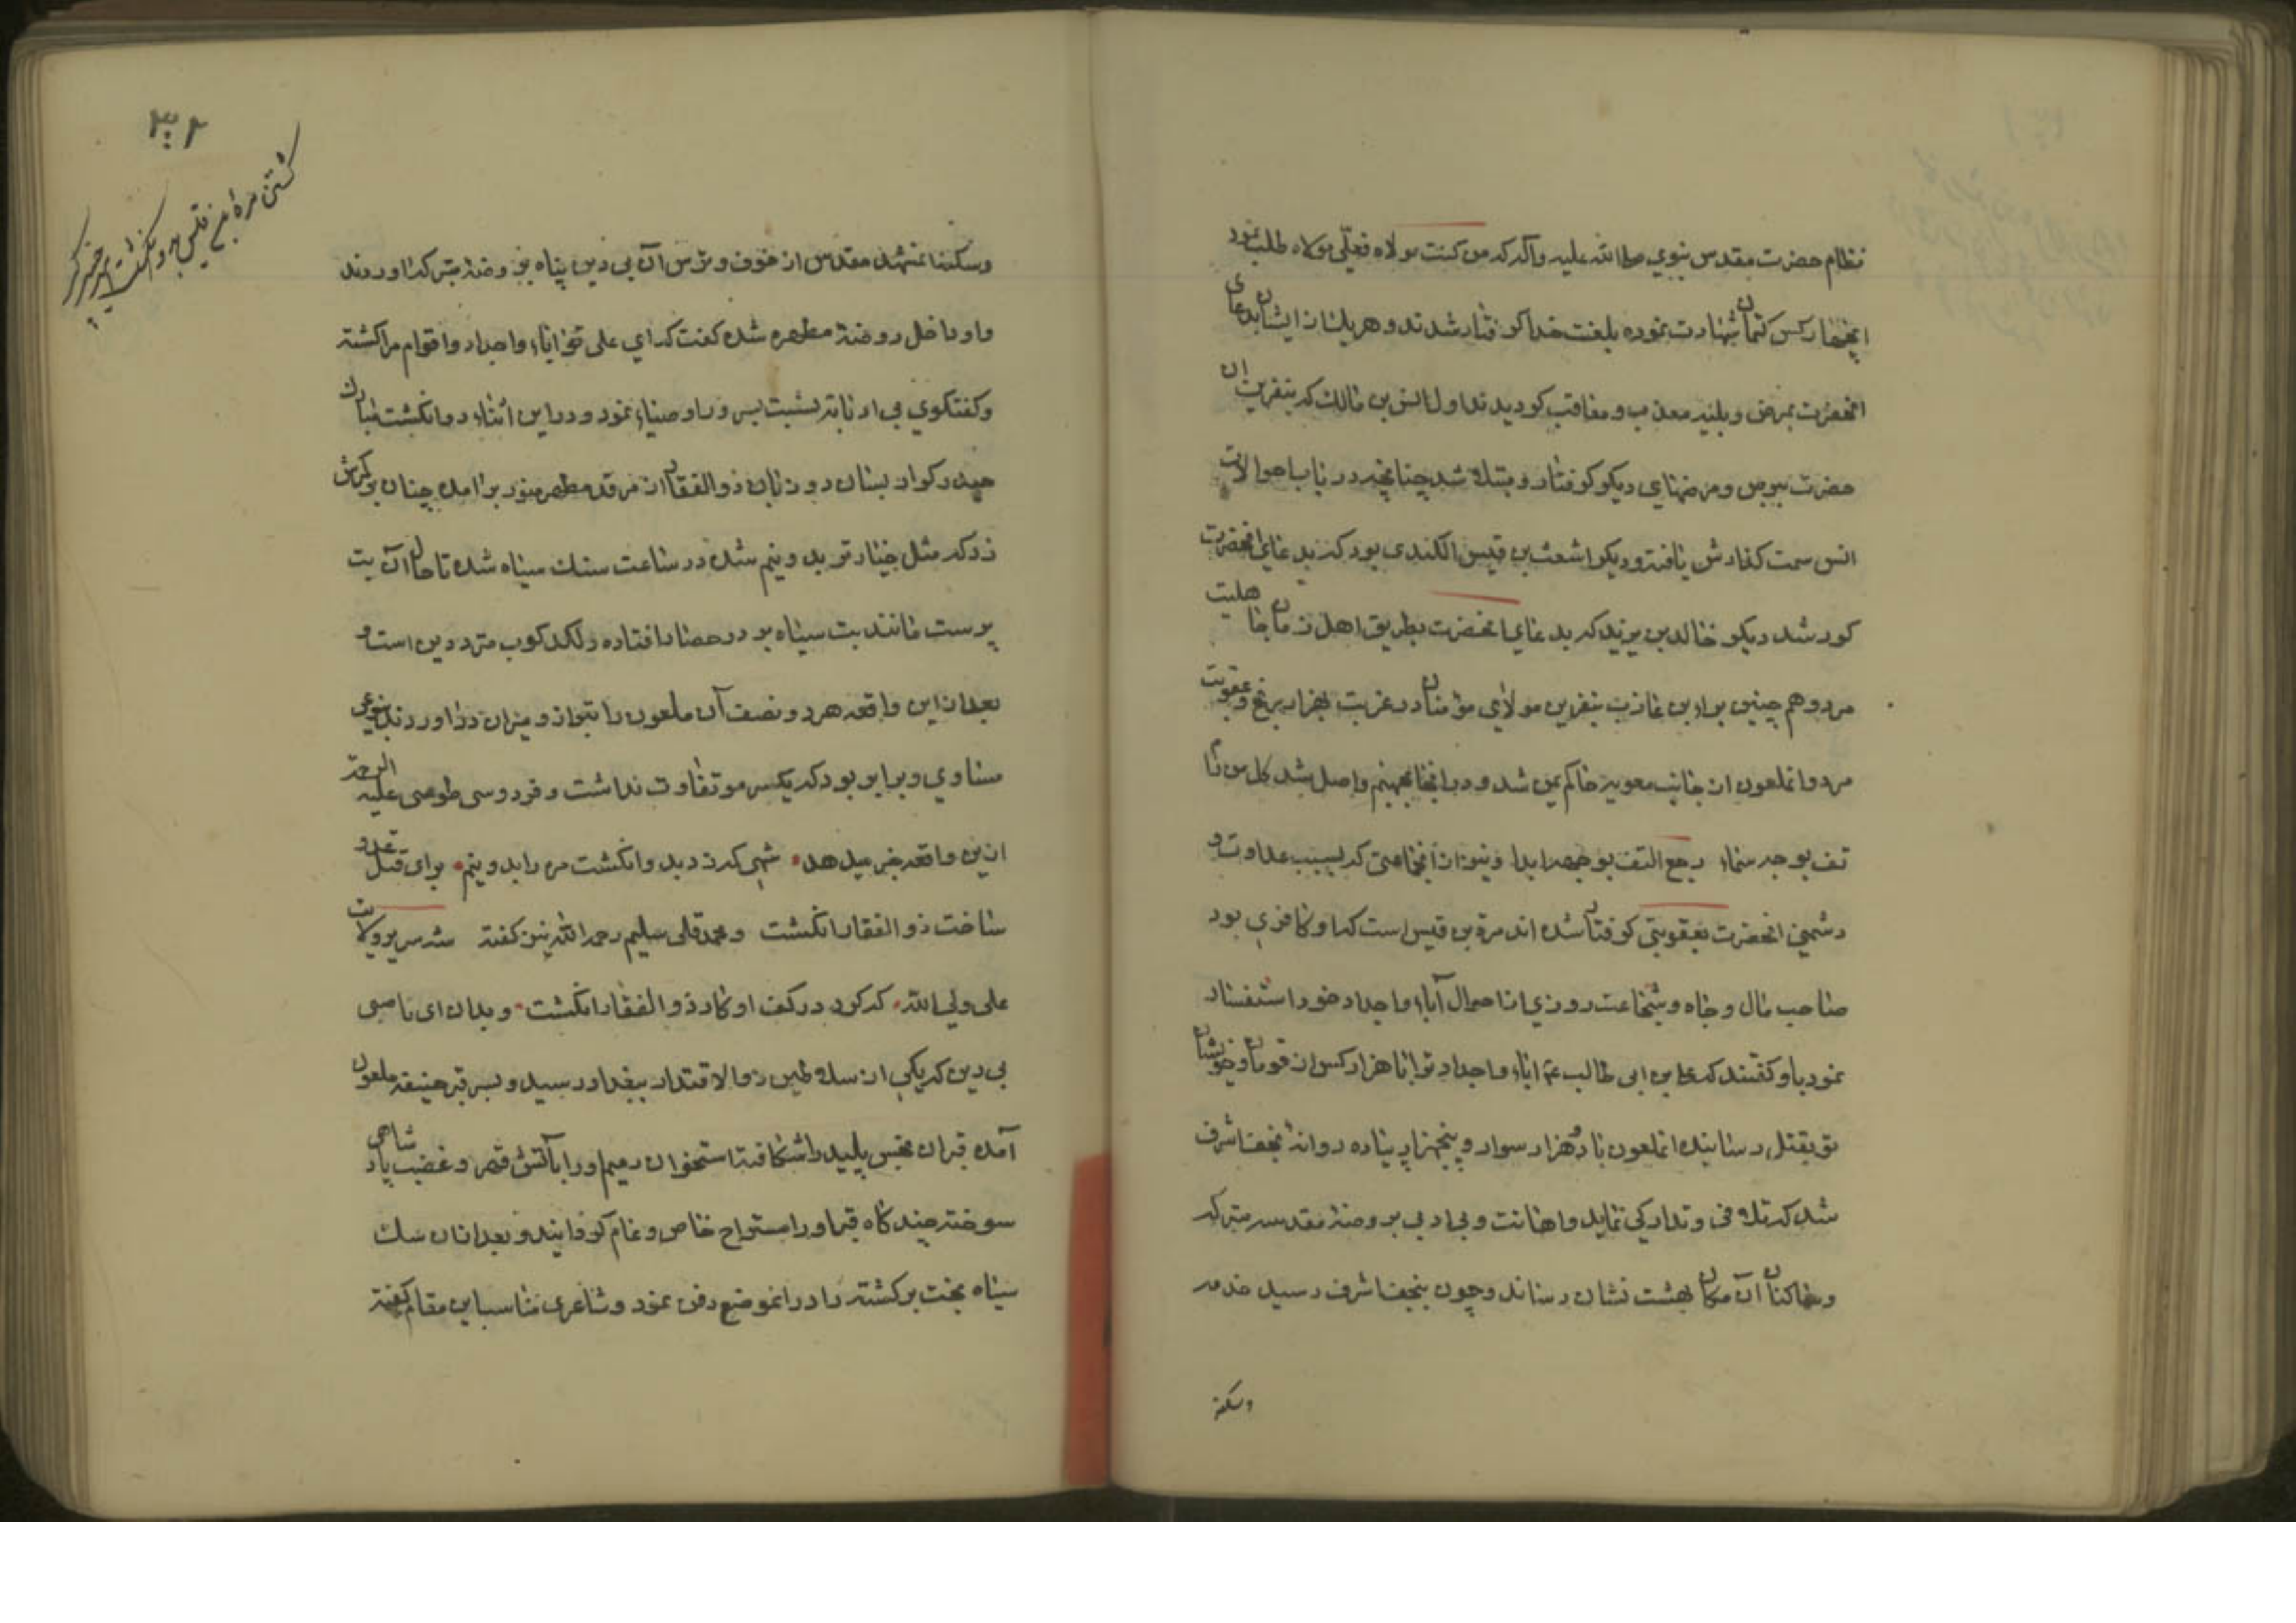 نظام حضرت مقدس نبوي صلی الله علیه وآله که من کنت مولاه فعلّی مولاه طلب نمود
اینچهار کس کتمان شهادت نموده بلعنت خدا کرفتار شدند و هر یك از ایشان بدعای
انحضرت بمرض و بلیه معذب و معاقب کردیدند اول انس بن مالك که بنفرین ان
حضرت ببرص و مرضهای دیکر کرفتار و مبتلا شد چنانچه در باب احوالات
انس سمت کذارش یافته و دیکر اشعث بن قیس الکندی بود که بدعای انحضرت
کور شد دیکر خالد بن یزید که بدعای انحضرت بطریق اهل زمان جاهلیت
مرد و هم چنین براء بن عازب بنفرین مولای مؤمنان در غربت بهزار رنج و عقوبت
مرد و انملعون از جانب معویه حاکم یمن شد و در انجا بجهنم واصل شد کل من
تف بوجه سماء رجع التف بوجهه ابدا و نیز از انجماعتی که بسبب عداوت و
دشمنی انحضرت بعقوبتی کرفتار شده اند مرة بن قیس است که او کافری بود
صاحب مال و جاه و شجاعت روزی از احوال آباء و اجداد خود استفسار
نمود باو کفتند که علی بن ابی طالب ع اباء و اجداد ترا با هزار کس از قومان و خویشان
تو بقتل رسانیده انملعون با دو هزار سوار و پنجهزار پیاده روانهٔ نجف اشرف
شد که تلافی و تدارکی نماید و اهانت و بی ادبی بروضهٔ مقدسه متبرکه
و ساکنان آن مکان بهشت نشان رساند و چون بنجف اشرف رسید خدمه
وسکنه
۳۰۲
کشتن مرهٔ بن قیس بدو انکشت
وسکنهٔ مشهد مقدس از خوف و ترس آن بی دین پناه بروضهٔ متبرکه اوردند
و او داخل روضهٔ مطهره شده کفت که ای علی تو اباء و اجداد و اقوام مرا کشتهٔ
و کفتکوی بی ادبانه نسبت بسرور اوصیاء نمود و در این اثناء دو انکشت مبارك
حیدر کرار بسان دو زبان ذو الفقار از مرقد مطهر منور برامده چنان بر کمرش
زد که مثل خیار تر بدو نیم شده در ساعت سنك سیاه شد تا حال آن بت
پرست مانند بت سیاه بر در حصار افتاده و لکد کوب مترددین است و
بعد از این واقعه هر دو نصف آن ملعون را بترازو و میزان در اوردند بنوعی
مساوي و برابر بود که یکسر مو تفاوت نداشت و فردوسی طوسی علیه الرحمه
از این واقعه خبر میدهد شهی که زد بدو انکشت مره را بدو نیم برای قتل عدو
ساخت ذو الفقار انکشت و محمد قلی سلیم رحمه الله نیز کفته شه سریر ولایت
علی ولی الله که کرد در کف او کار ذو الفقار انکشت و بدان ای ناصبی
بی دین که یکی از سلاطین ذوالاقتدار ببغداد رسید و بسر قبر حنیفه ملعون
آمده قبر ان نجس پلید را شکافته استخوان رمیم او را بآتش قهر و غضب پادشاهی
سوخته چند کاه قبر او را مستراح خاص و عام کردانیدند و بعد از ان سك
سیاه بخت برکشته را در انموضع دفن نمود و شاعری مناسب این مقام کفته